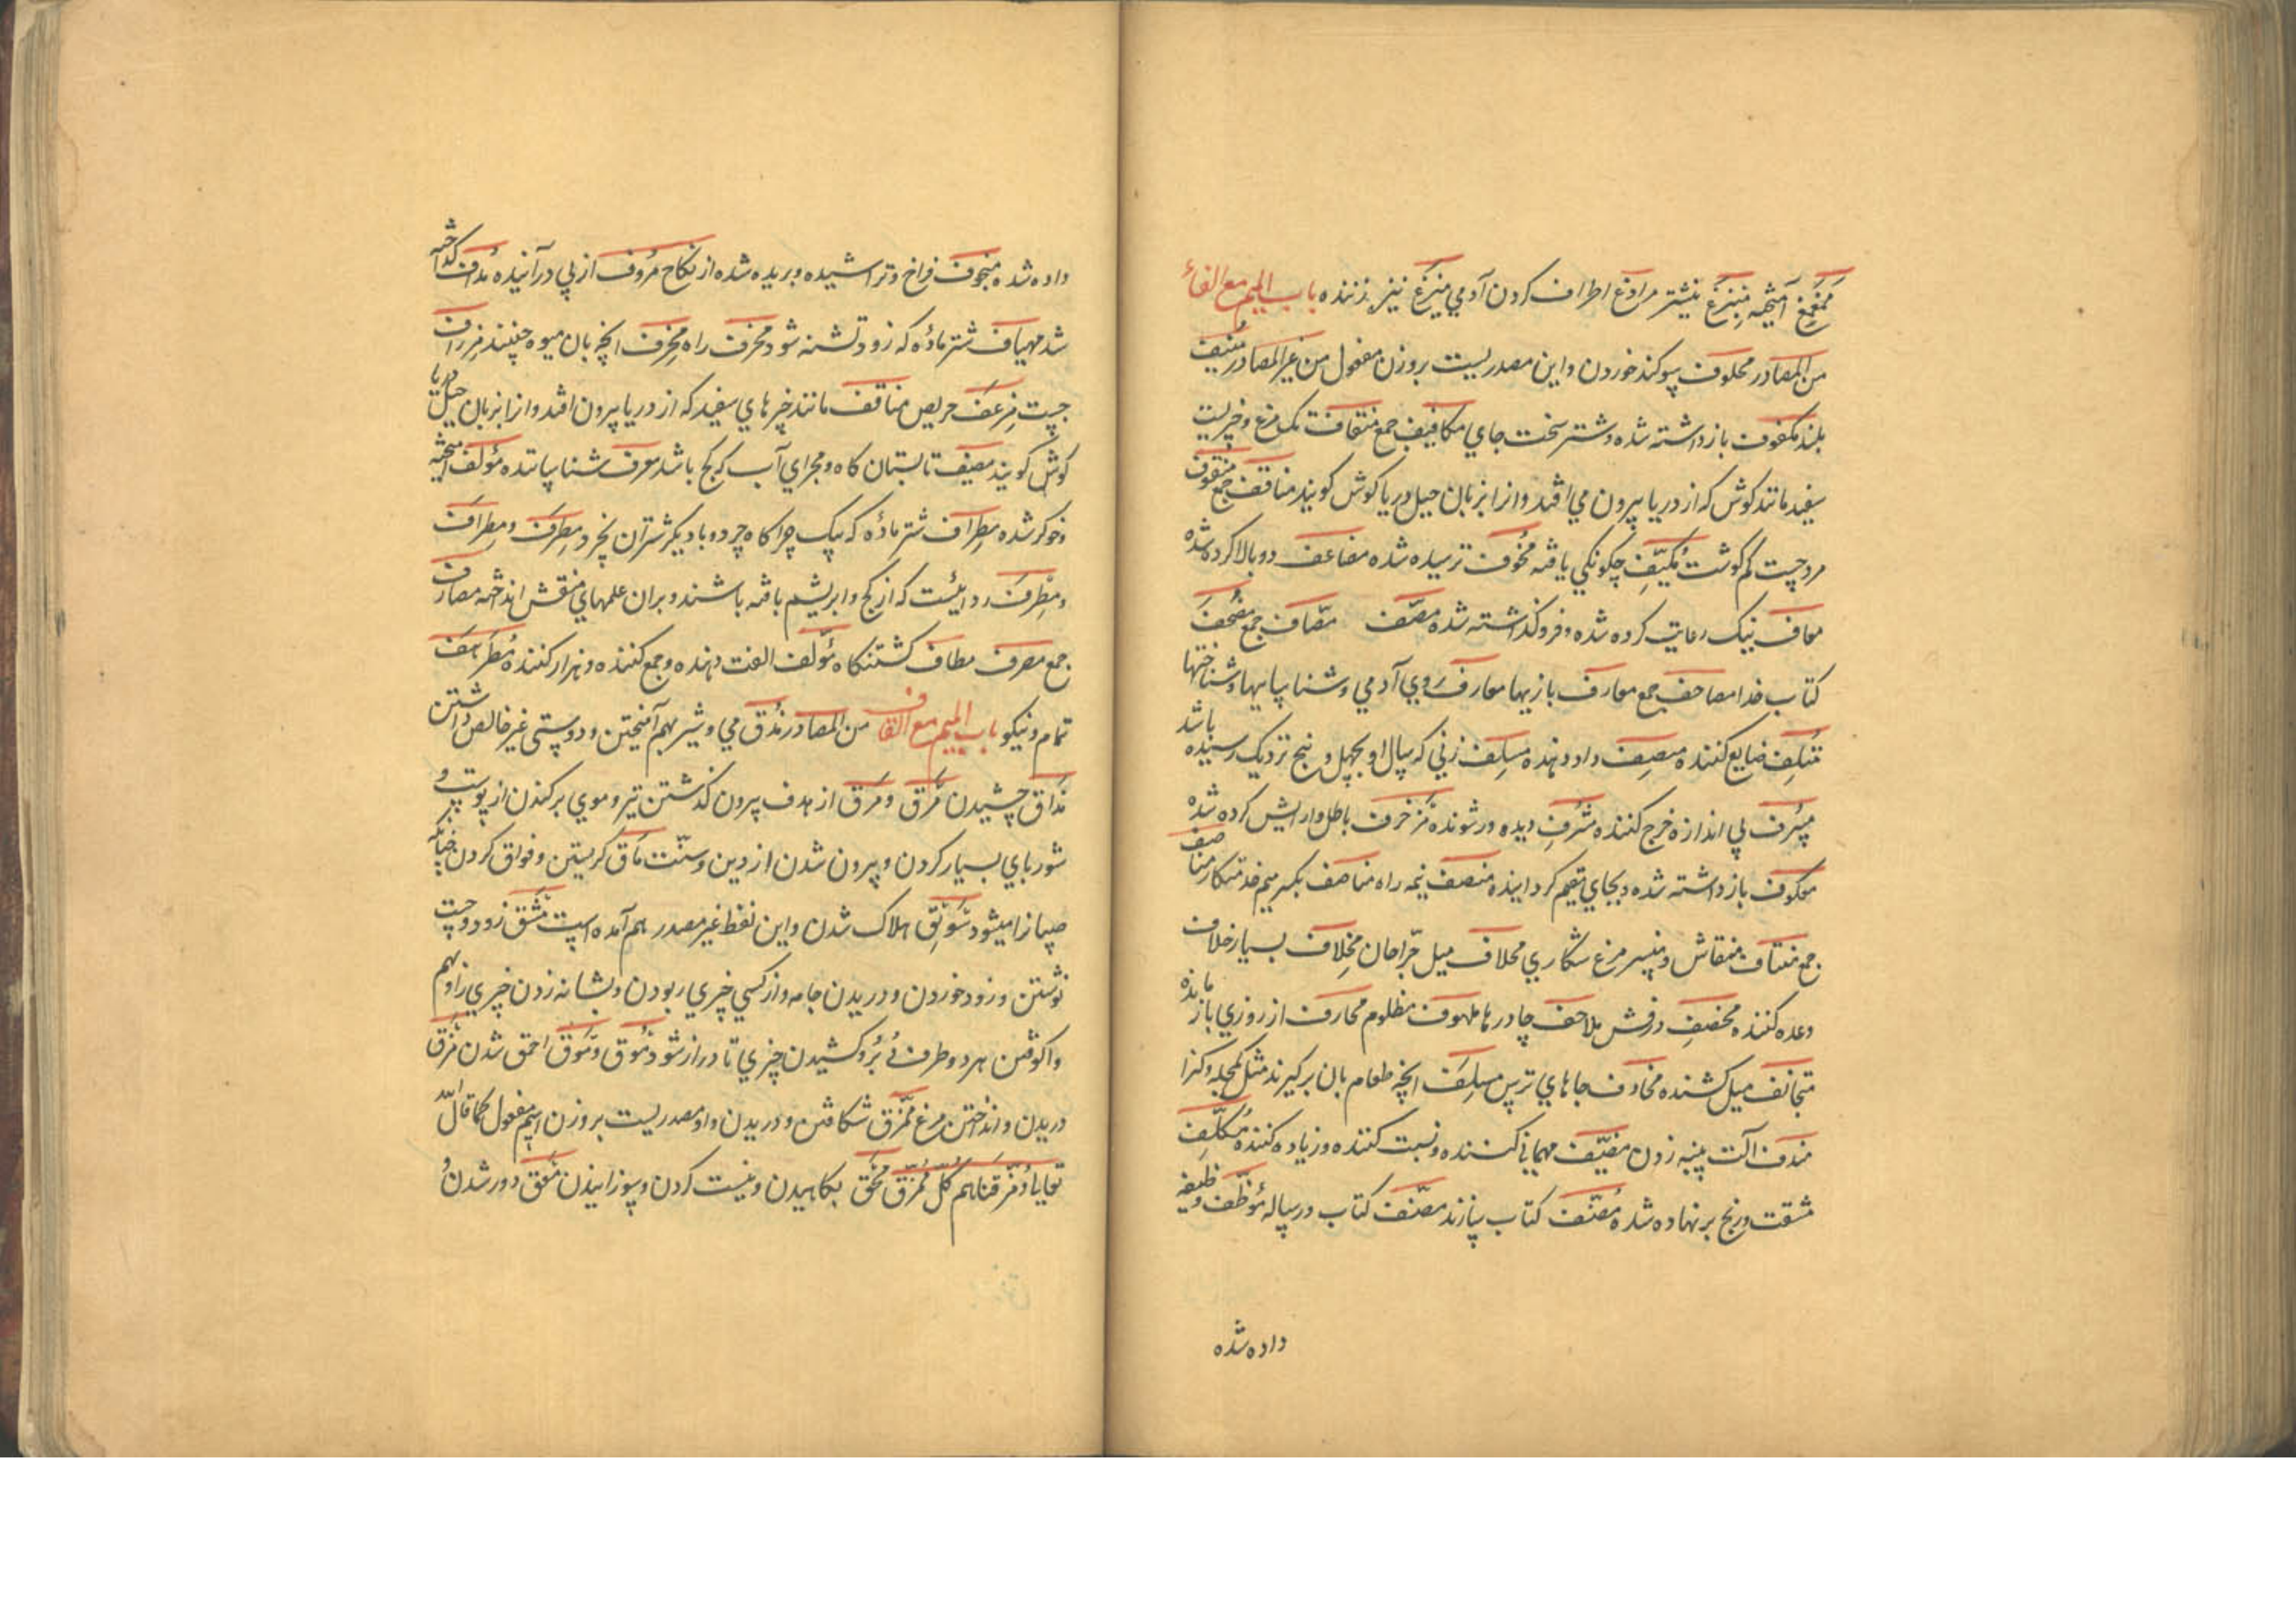 ممغمغ آمیخته منزغ نیشتر مرادغ اطراف کردن آدمی منزغ نیز زننده باب المیم مع الفاء
من المصادر محلوف سوکند خوردن واین مصدریست بروزن مفعول من غیر المصادر منیف
بلند مکفوف بازداشته شده و شتر سخت جای مکافیف جمع منقاف تک مرغ وخریست
سفید مانند کوش که از دریا بیرون می افتد وانرا بزبان جیل دریا کوش کویند مناقف جمع منقوف
مرد چست کم کوشت مکیّف چکونکی یافته مخوف ترسیده شده مضاعف دوبالا کرده شده
معاف نیک رعایت کرده شده و فروگذاشته شده مصحف مصاف جمع مصحف
کتاب خدا مصاحف جمع معارف بازیها معارف روی آدمی وشناساییها وشناختها
متلف ضایع کننده منصف داد دهنده مسلف زنی که سال او بچهل و پنج نزدیک رسیده باشد
مسرف بی اندازه خرج کننده مشرف دیده ور شونده مزخرف باطل وآرایش کرده شده
معکوف بازداشته شده و بجای مقیم کردانیده منصف نیمه راه مناصف بکسر میم خدمتکار مناصف
جمع منتاف منقاش و منسر مرغ شکاری محلاف میل جرّاحان مخلاف بسیار خلاف
وعده کننده مخصف درفش ملاحف چادرها ملهوف مظلوم محارف از روزی باز مانده
متجانف میل کننده مخاوف جاهای ترس مسلف انچه طعام بان برکیرند مثل کمچه وکذا
مندف آلت پنبه زدن مضیّف مهمانی کننده ونسبت کننده وزیاده کننده مکلّف
مشقت ورنج برنهاده شده مصنّف کتاب سازنده مصنّف کتاب ورساله موظّف وظیفه
داده شده
داده شده منجوف فراخ وتراشیده وبریده شده از نکاح مردوف از پی درآینده مداف کداخته
شد مهیاف شتر ماده که زود تشنه شود مخرف راه مخرف انچه بان میوه چینند مزراف
چست مزعف حریص مناقف مانند خرهای سفید که از دریا بیرون افتد وانرا بزبان جیل دریا
کوش کویند مصیف تابستان کاه ومجرای آب که کج باشد معرف شناساننده مؤلف آمیخته
وخوکر شده مطراف شتر ماده که بیک چراکاه چرد وبا دیکر شتران نچرد مطرف ومطراف
ومطرف ردائیست که از کج وابریشم بافته باشند وبران علمهای منقش انداخته مصارف
جمع مصرف مطاف کشتنکاه مؤلّف الفت دهنده وجمع کننده وهزار کننده مطرهف
تمام ونیکو باب المیم مع القاف من المصادر مذق می وشیر بهم آمیختن ودوستی غیر خالص داشتن
مذاق چشیدن مرق ومرق از هدف بیرون کذشتن تیر وموی برکندن از پوست و
شوربای بسیار کردن وبیرون شدن از دین وسنّت ماق کریستن وفواق کردن چنانکه
صبیانرا میشود موبق هلاک شدن واین لفظ غیر مصدر هم آمده است مشق زود وچست
نوشتن وزود خوردن ودریدن جامه واز کسی چیزی ربودن وبشانه زدن چیزی را وبهم
واکوفتن هر دو طرف وکشیدن چیزی تا دراز شود موق وموق احمق شدن مزق
دریدن وانداختن مرغ ممزق شکافتن ودریدن واو مصدریست بروزن اسم مفعول کما قال الله
تعالی ومزّقناهم کلّ ممزّق محق بکاهیدن ونیست کردن وسوزانیدن معق دور شدن